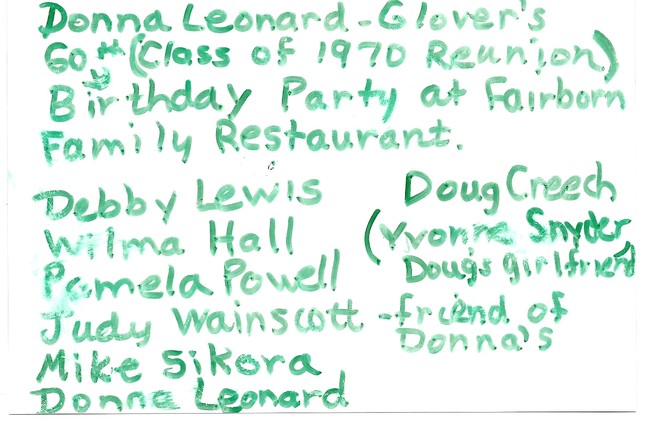 Donna Leonard-Glover's
60th (Class of 1970 Reunion)
Birthday Party at Fairborn
Family Restaurant.
Debby Lewis
Wilma Hall
Pamela Powell
Judy Wainscott - friend of
Donna's
Mike Sikora
Donna Leonard
Doug Creech
(Yvonne Snyder
Doug's girlfriend)